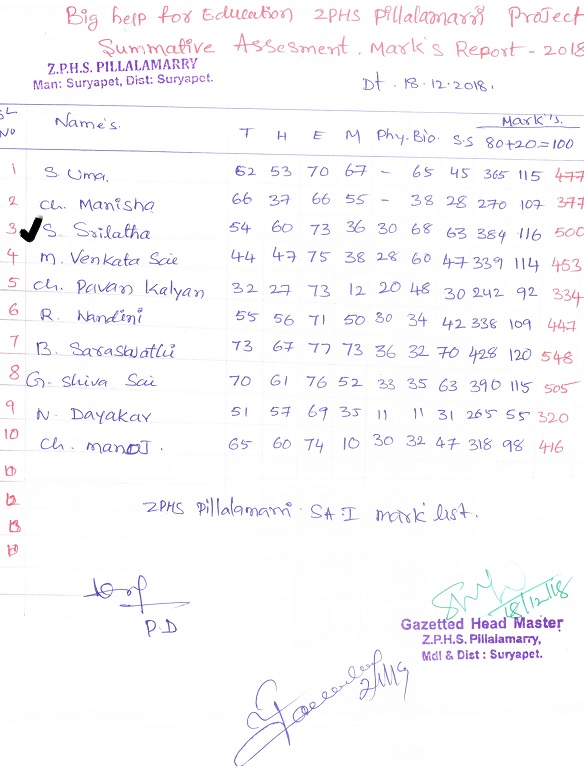 Big help for Education ZPHS Pillalamarri Project
Summative Assesment. Mark's Report - 2018
Z.P.H.S. PILLALAMARRY
Man: Suryapet, Dist: Suryapet.
Dt. 18.12.2018.
SL NO Name's. T H E M Phy. Bio. S.S Mark's. 80+20=100
1 S. Uma. 62 53 70 67 - 65 45 365 115 477
2 Ch. Manisha 66 37 66 55 - 38 28 270 107 377
3 S. Srilatha 54 60 73 36 30 68 63 384 116 500
4 M. Venkata Sai 44 47 75 38 28 60 47 339 114 453
5 Ch. Pavan Kalyan 32 27 73 12 20 48 30 242 92 334
6 R. Nandini 55 56 71 50 30 34 42 338 109 447
7 B. Saraswathi 73 67 77 73 36 32 70 428 120 548
8 G. Shiva Sai 70 61 76 52 33 35 63 390 115 505
9 N. Dayakar 51 57 69 35 11 11 31 265 55 320
10 Ch. manoJ. 65 60 74 10 30 32 47 318 98 416
11
12
13
ZPHS Pillalamarri SA I mark list.
P.D
18/12/18
Gazetted Head Master
Z.P.H.S. Pillalamarry,
Mdl & Dist : Suryapet.